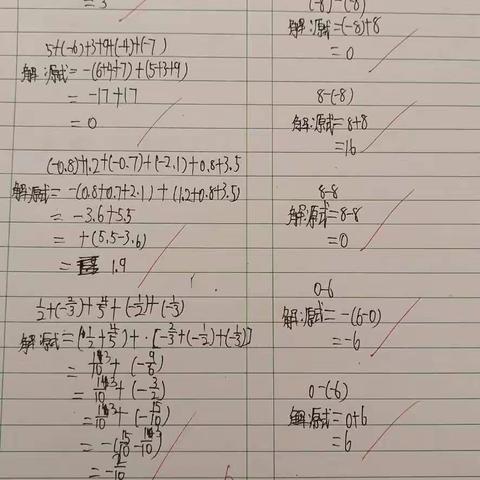 = 3
5+(-6)+3+9+(-4)+(-7)
解:原式=-(6+4+7)+(5+3+9)
= -17+17
= 0
(-0.8)+1.2+(-0.7)+(-2.1)+0.8+3.5
解:原式= -(0.8+0.7+2.1)+(1.2+0.8+3.5)
= -3.6+5.5
= +(5.5-3.6)
= 1.9
1/2+(-2/3)+4/5+(-1/2)+(-1/3)
解:原式=(1/2+4/5)+[-2/3+(-1/2)+(-1/3)]
= 13/10+(-9/6)
= 13/10+(-3/2)
= 13/10+(-15/10)
= -(15/10-13/10)
= -2/10
(-8)-(-8)
解:原式=(-8)+8
= 0
8-(-8)
解:原式=8+8
=16
8-8
解:原式=8-8
=0
0-6
解:原式= -(6-0)
=-6
0-(-6)
解:原式=0+6
= 6